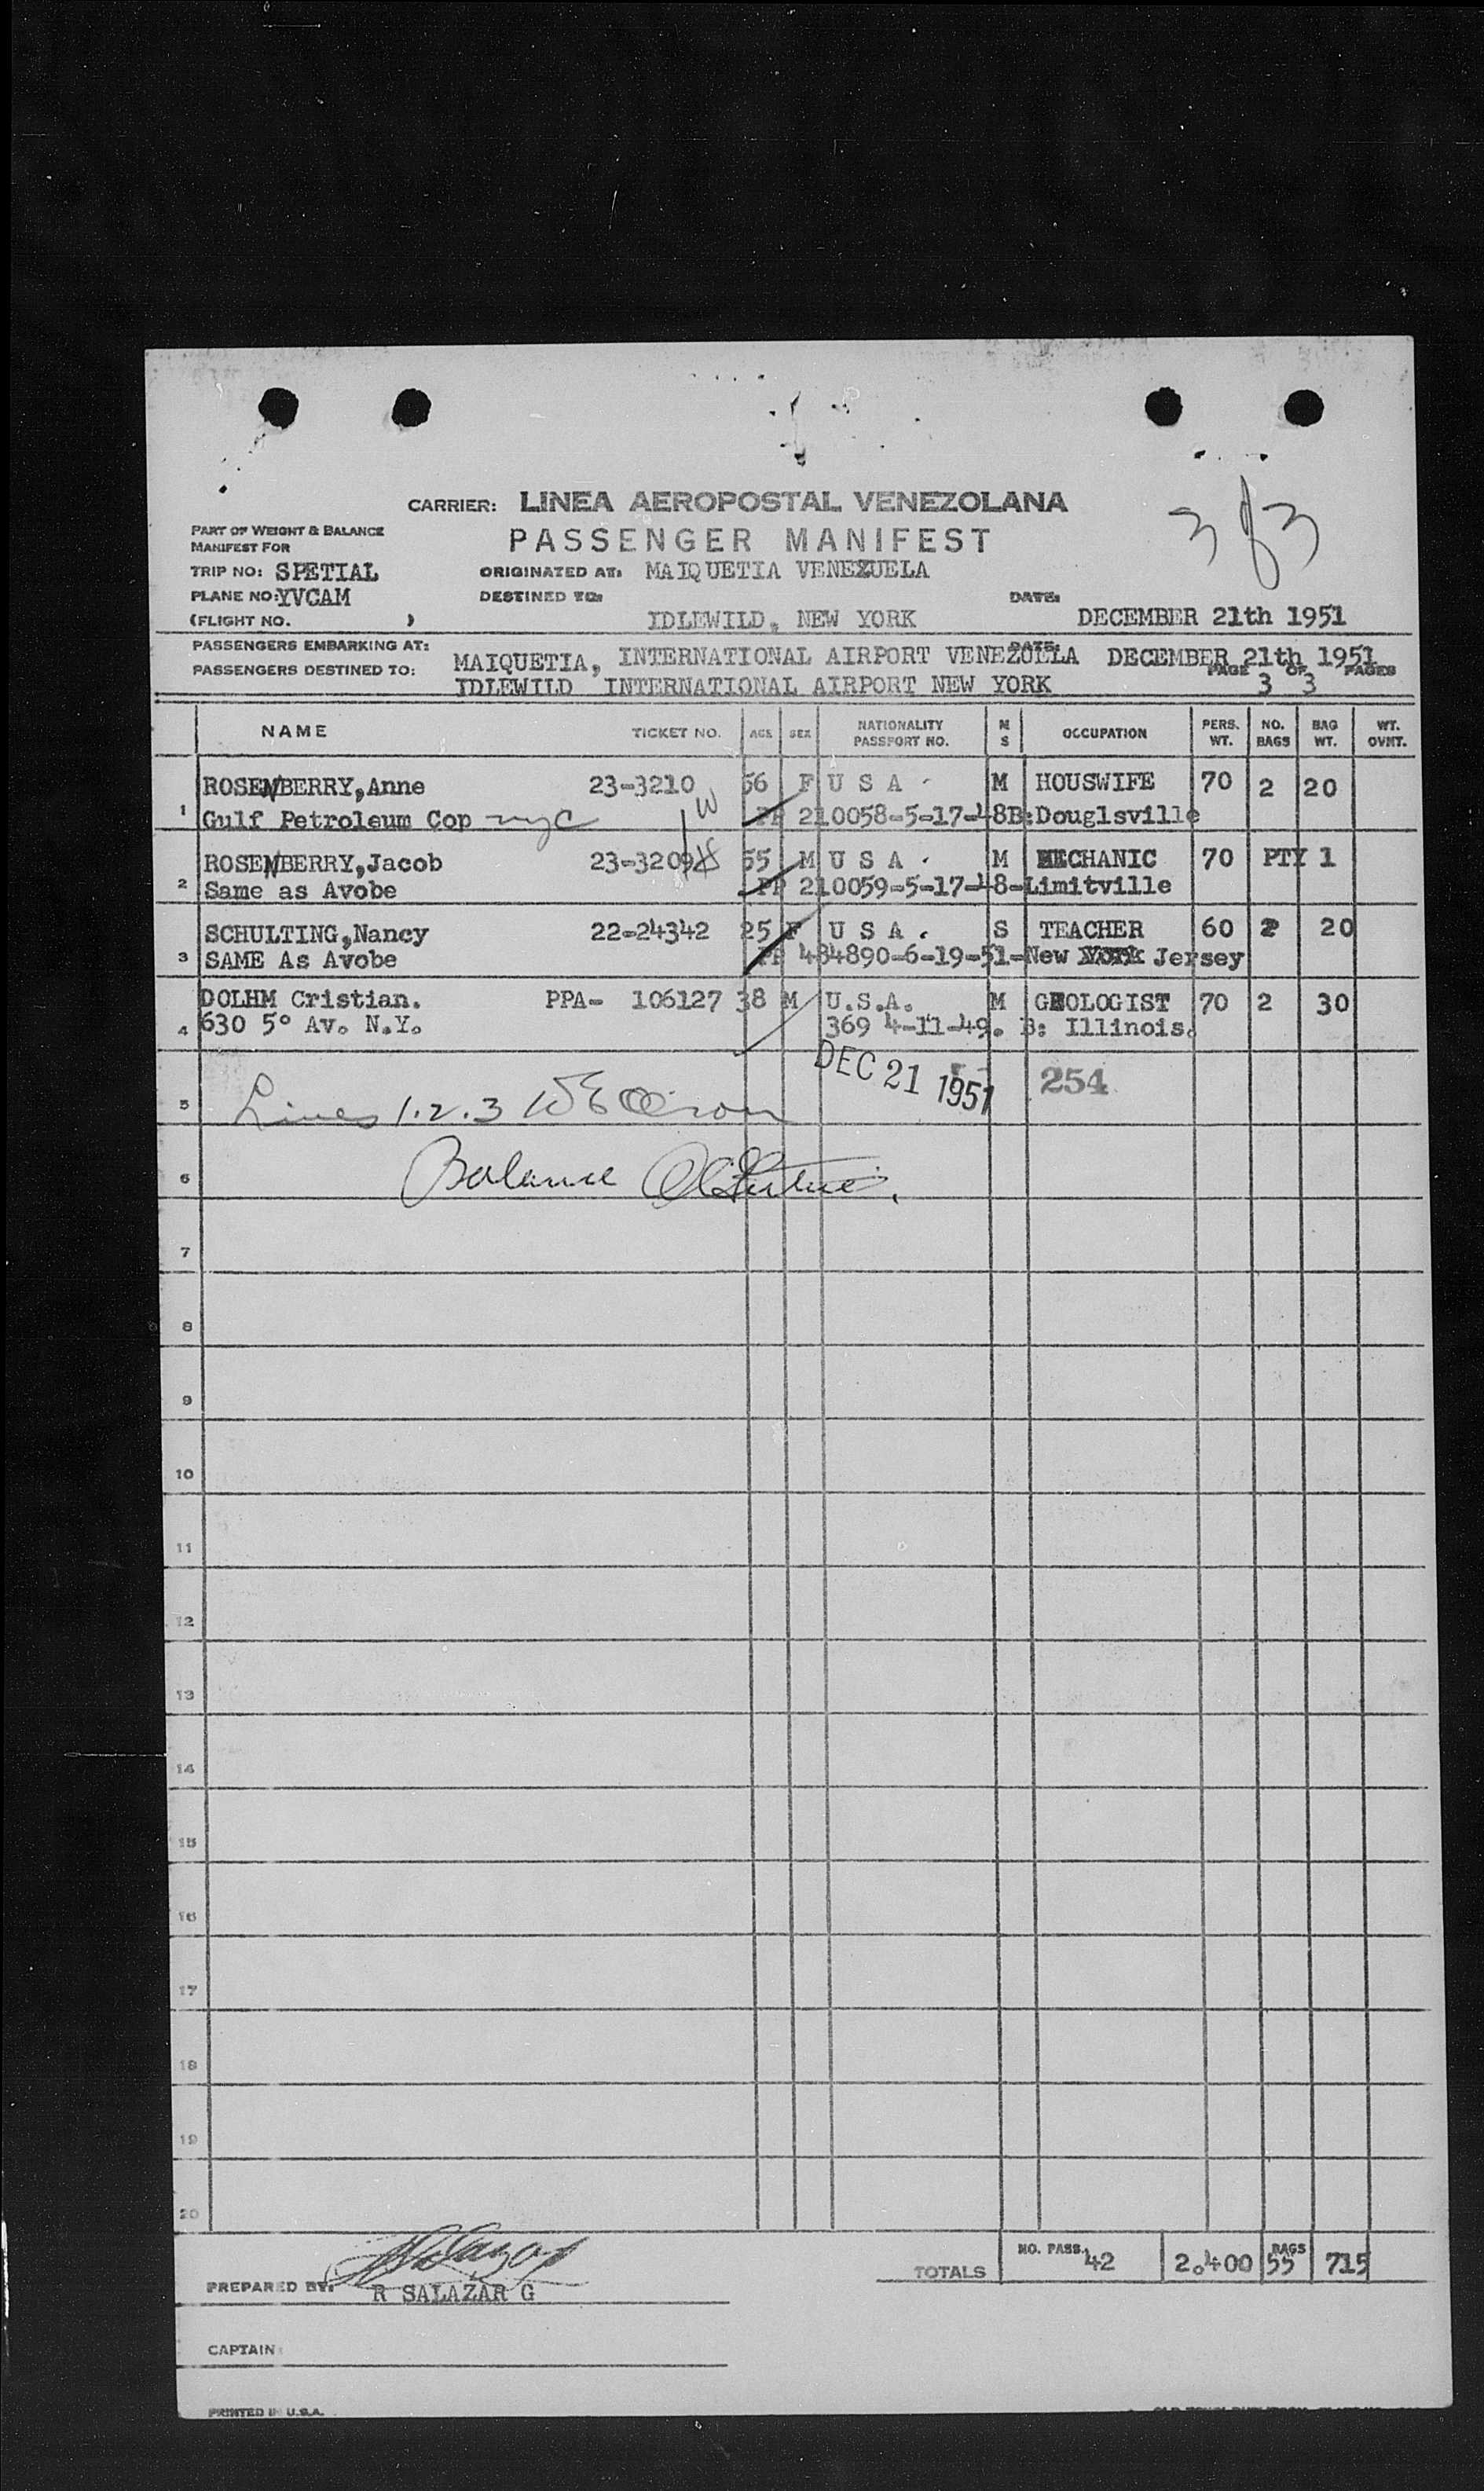 CARRIER: LINEA AEROPOSTAL VENEZOLANA
3 of 3
PART OF WEIGHT & BALANCE
MANIFEST FOR
PASSENGER MANIFEST
TRIP NO: SPETIAL ORIGINATED AT: MAIQUETIA VENEZUELA
PLANE NO: YVCAM DESTINED TO: DATE:
(FLIGHT NO. ) IDLEWILD, NEW YORK DECEMBER 21th 1951
PASSENGERS EMBARKING AT: MAIQUETIA, INTERNATIONAL AIRPORT VENEZUELA DATE: DECEMBER 21th 1951
PASSENGERS DESTINED TO: IDLEWILD INTERNATIONAL AIRPORT NEW YORK PAGE 3 OF 3 PAGES
NAME TICKET NO. AGE SEX NATIONALITY PASSPORT NO. M S OCCUPATION PERS. WT. NO. BAGS BAG WT. WT. OVNT.
ROSENBERRY,Anne 23-3210 56 F U S A M HOUSWIFE 70 2 20
1 Gulf Petroleum Cop nyc PP 210058-5-17-48B:Douglsville
ROSENBERRY,Jacob 23-3209 55 M U S A . M MECHANIC 70 PTY 1
2 Same as Avobe PP 210059-5-17-48-Limitville
SCHULTING,Nancy 22-24342 25 F U S A . S TEACHER 60 2 20
3 SAME As Avobe PP 484890-6-19-51-New York Jersey
DOLHM Cristian. PPA- 106127 38 M U.S.A. M GEOLOGIST 70 2 30
4 630 5° Av. N.Y. 369 4-11-49. B: Illinois.
DEC 21 1951 254
5 Lines 1.2.3
6 Balance
7
8
9
10
11
12
13
14
15
16
17
18
19
20
TOTALS NO. PASS. 42 2.400 BAGS 55 715
PREPARED BY: R SALAZAR G
CAPTAIN:
PRINTED IN U.S.A.